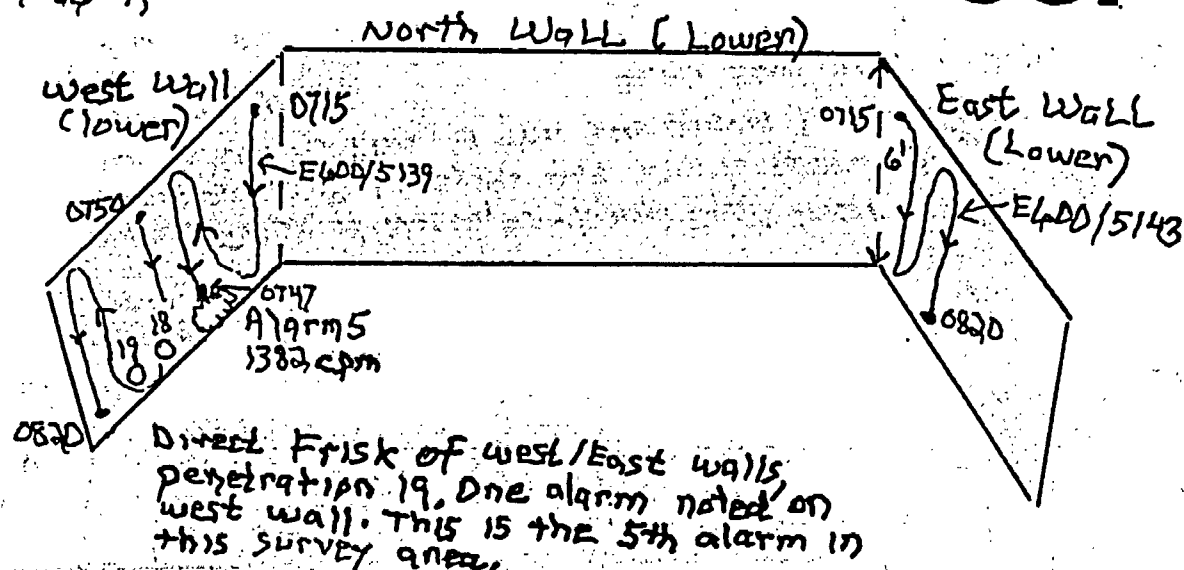 North Wall (Lower)
West Wall
(lower)
0715
E600/5139
0750
0747
Alarm 5
1382 cpm
18
19
0820
0715
6'
East Wall
(Lower)
E600/5143
0820
Direct Frisk of west/East walls,
penetration 19, One alarm noted on
west wall. This is the 5th alarm in
this survey area.